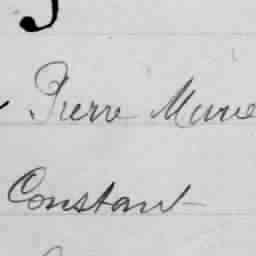 Pierre Marie
Constant